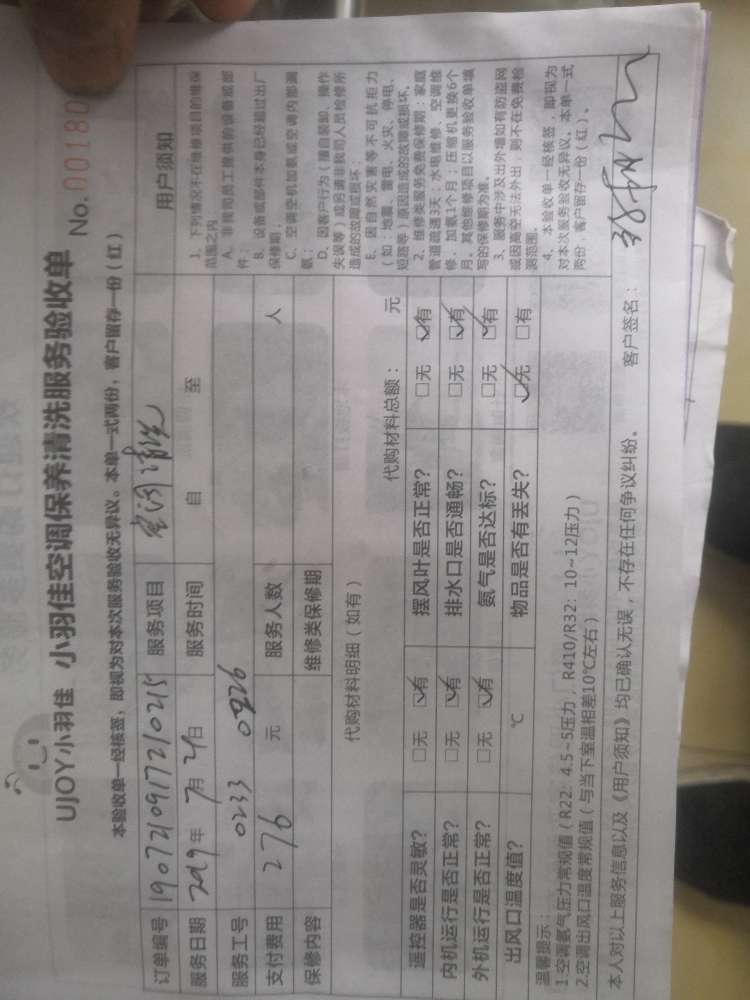 UJOY小羽佳 小羽佳空调保养清洗服务验收单 No. 00180
本验收单一经核签，即视为对本次服务验收无异议。本单一式两份，客户留存一份（红）
订单编号 1907210917210215 服务项目 空调清洗
服务日期 2019年 7月 21日 服务时间 自 至
服务工号 0233 0926
支付费用 276 元 服务人数 人
保修内容 维修类保修期
代购材料明细（如有） 代购材料总额： 元
遥控器是否灵敏？ □无 ☑有 摆风叶是否正常？ □无 ☑有
内机运行是否正常？ □无 ☑有 排水口是否通畅？ □无 ☑有
外机运行是否正常？ □无 ☑有 氨气是否达标？ □无 ☑有
出风口温度值？ ℃ 物品是否有丢失？ ☑无 □有
温馨提示：
1.空调氨气压力常规值（R22：4.5~5压力，R410/R32：10~12压力）
2.空调出风口温度常规值（与当下室温相差10℃左右）
本人对以上服务信息以及《用户须知》均已确认无误，不存在任何争议纠纷。 客户签名：
用户须知
1、下列情况不在维修项目的维保
范围之内
A、非我司员工提供的设备或部
件；
B、设备或部件本身已经超过出厂
保修期；
C、空调空机加氨或空调内部漏
氨；
D、因客户行为（擅自装卸、操作
失误等）或另请非我司人员检修所
造成的故障或损坏；
E、因自然灾害等不可抗拒力
（如：地震、雷电、火灾、停电、
短路等）原因造成的故障或损坏。
2、维修类服务免费保修期：家庭
管道疏通3天；水电维修、空调维
修、加氨1个月；压缩机更换6个
月。其他维修项目以服务验收单填
写的保修期为准。
3、服务中涉及出外墙如有防盗网
或因高空无法外出，则不在免费检
测范围。
4、本验收单一经核签，即视为
对本次服务验收无异议。本单一式
两份，客户留存一份（红）。